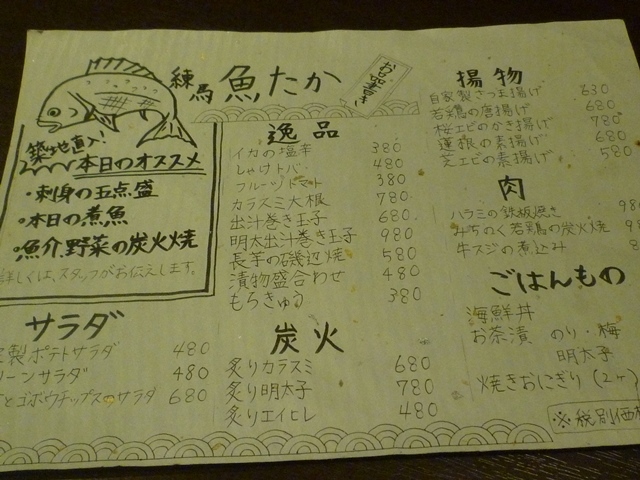 練馬 魚たか
お品書き
築地直入!
本日のオススメ
・刺身の五点盛
・本日の煮魚
・魚介、野菜の炭火焼
詳しくは、スタッフがお伝えします。
サラダ
製ポテトサラダ 480
リーンサラダ 480
とゴボウチップスのサラダ 680
逸品
イカの塩辛 380
しゃけトバ 480
フルーツトマト 380
カラスミ大根 780
出汁巻き玉子 680
明太出汁巻き玉子 980
長芋の磯辺焼 580
漬物盛合わせ 480
もろきゅう 380
炭火
炙りカラスミ 680
炙り明太子 780
炙りエイヒレ 480
揚物
自家製さつま揚げ 630
若鶏の唐揚げ 680
桜エビのかき揚げ 780
蓮根の素揚げ 680
芝エビの素揚げ 580
肉
ハラミの鉄板焼き
みちのく若鶏の炭火焼
牛スジの煮込み
ごはんもの
海鮮丼
お茶漬 のり・梅
明太子
焼きおにぎり(2ヶ)
※税別価格